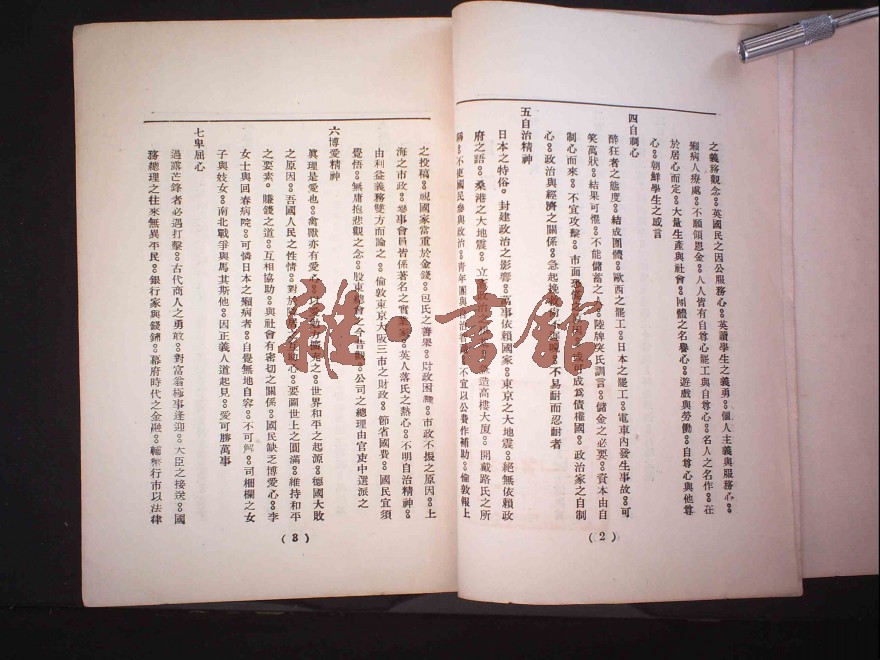 之義務觀念。英國民之因公服務心。英蘭學生之義勇。個人主義與服務心。
癩病人療處。不願領恩金。人人皆有自尊心罷工與自尊心。名人之名作。在
於居心而定。大量生產與社會。團體之名譽心。遊戲與勞働。自尊心與他尊
心。朝鮮學生之感言
四自制心
醉狂者之態度。結成團體。歐西之罷工。日本之罷工。電車內發生事故。可
笑萬狀。結果可懼。不能儲蓄之人。陸牌突氏訓言。儲金之必要。資本由自
制心而來。不宜攻擊。市面恐 成爲債權國。政治家之自制
心。政治與經濟之關係。急起挽救 不易耐而忍耐者
五自治精神
日本之特俗。封建政治之影響。萬事依賴國家。東京之大地震。絕無依賴政
府之語。桑港之大地震。立 政治之 造高樓大廈。開戴路氏之所
稱。不使國民參與政治。青年團與 治者 不宜以公費作補助。倫敦報上
(2)
之投稿。視國家當重於金錢。包氏之善舉。財政困難。市政不振之原因。上
海之市政。參事會員皆係著名之實業家。英人落氏之熱心。不明自治精神。
由利益義務雙方而論之。倫敦東京大阪三市之財政。節省國費。國民宜須
覺悟。無庸抱悲觀之念。股東總會之今昔觀。公司之總理由官吏中選派之
六博愛精神
眞理是愛也。禽獸亦有愛心。以愛 力擴充之。世界和平之起源。德國大敗
之原因。吾國人民之性情。對於 助心。要圖世上之圓滿。維持和平
之要素。賺錢之道。互相協助。與社會有密切之關係。國民缺乏博愛心。李
女士與回春病院。可憐日本之癩病者。自覺無地自容。不可解。司柵欄之女
子與妓女。南北戰爭與馬其斯他。因正義人道起見。愛可勝萬事
七卑屈心
過露芒鋒者必遇打擊。古代商人之勇敢。對富翁極事逢迎。大臣之接送。國
務總理之往來無異平民。銀行家與錢鋪。幕府時代之金融。輔幣行市以法律
(3)
雜·書館